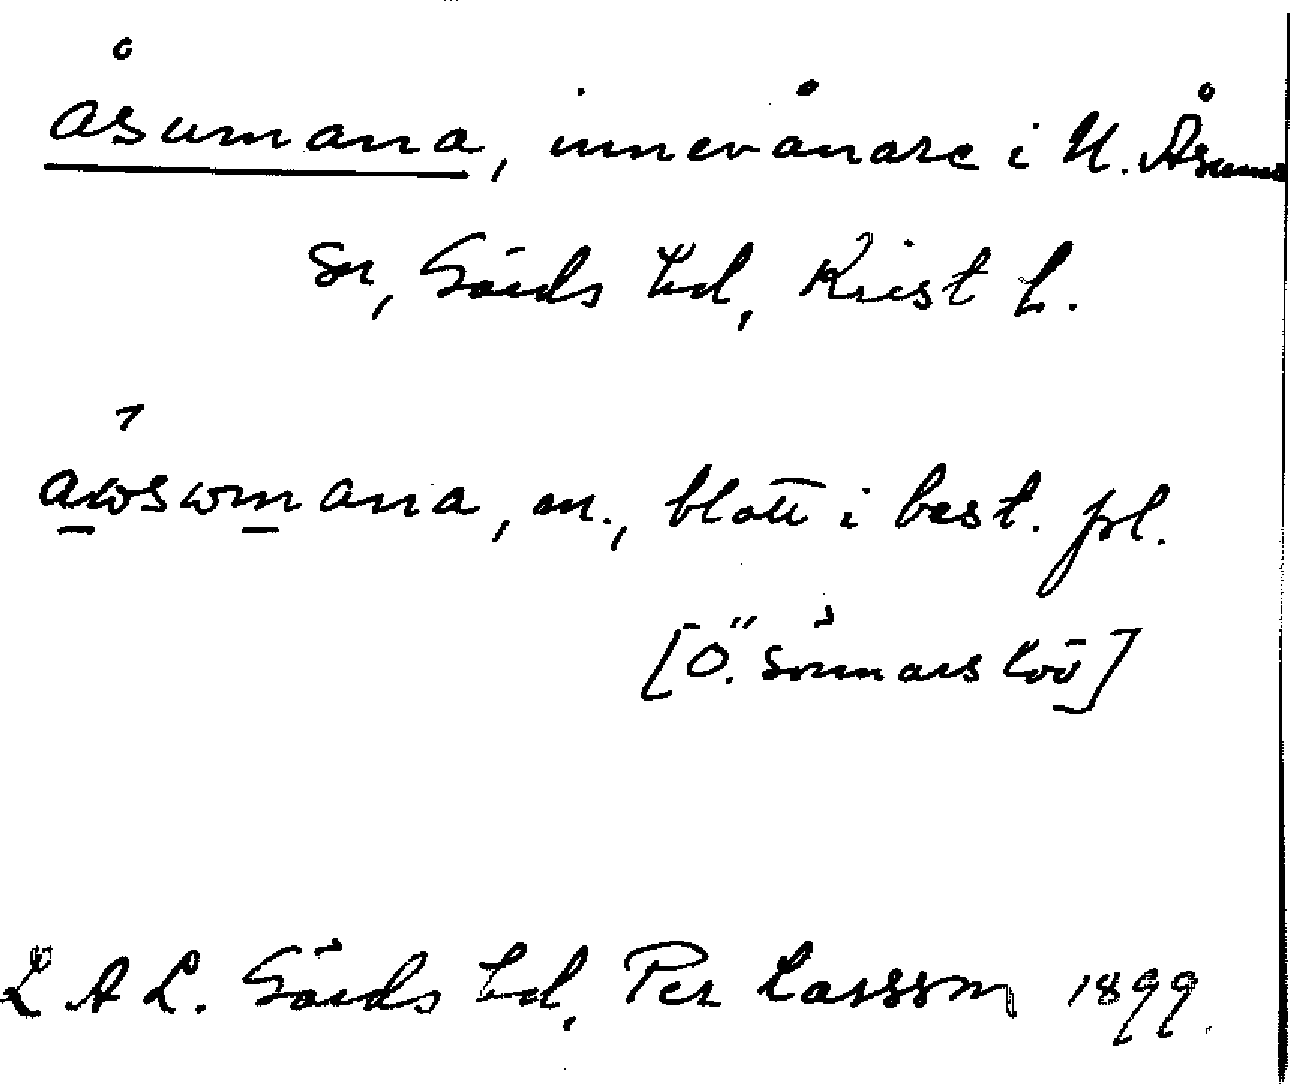 åsumana, innevånare i N. Åsum
sn, Gärds hd, Krist L.
awswmana, m., blott i best. pl.
[Ö. Sönnarslöv]
L A L. Gärds hd, Per Larsson 1899.